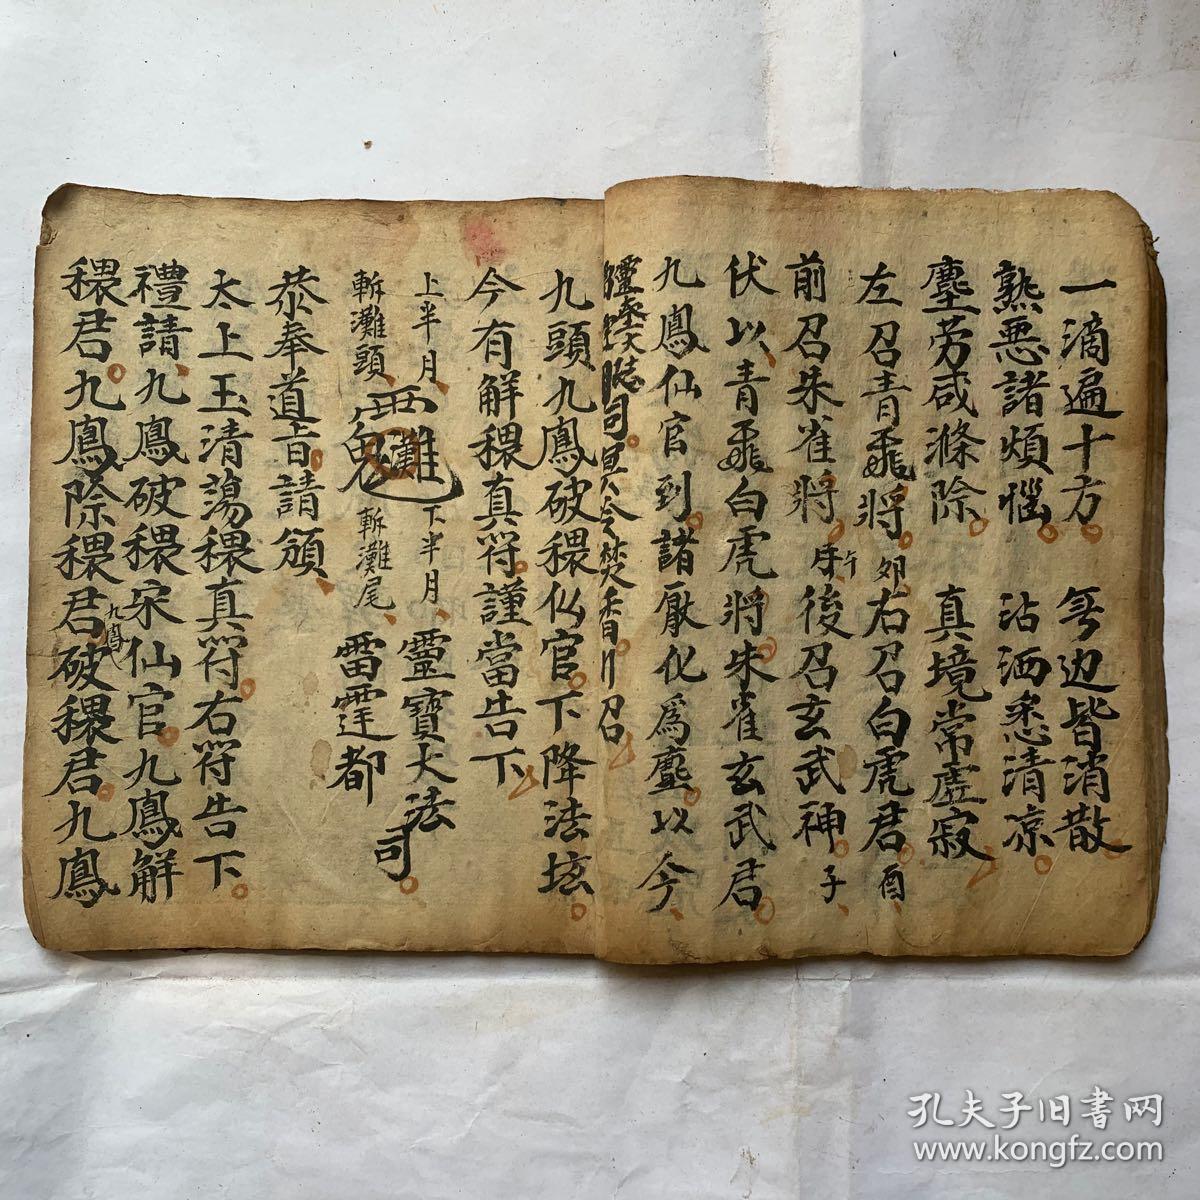 一滴遍十方。無边皆消散
熱悪諸煩惱。沾洒悉清凉。
塵劳咸滌除。真境常虚寂
左召青龍將。卯右召白虎君。酉
前召朱雀將。午後召玄武神。子
伏以青龍白虎將朱雀玄武君。
九鳳仙官到諸厭化為塵。以今
司。冥今焚香召
九頭九鳳破穢仙官。下降法坛。
今有解穢真符。謹當告下
上半月、下半月、靈寶大法司。
斬灘頭、斬灘尾、雷霆都
恭奉道旨。請頒、
太上玉清蕩穢真符。右符告下。
禮請、九鳳破穢宋仙官。九鳳解
穢君。九鳳除穢君九鳳破穢君。九鳳
孔夫子旧书网
www.kongfz.com